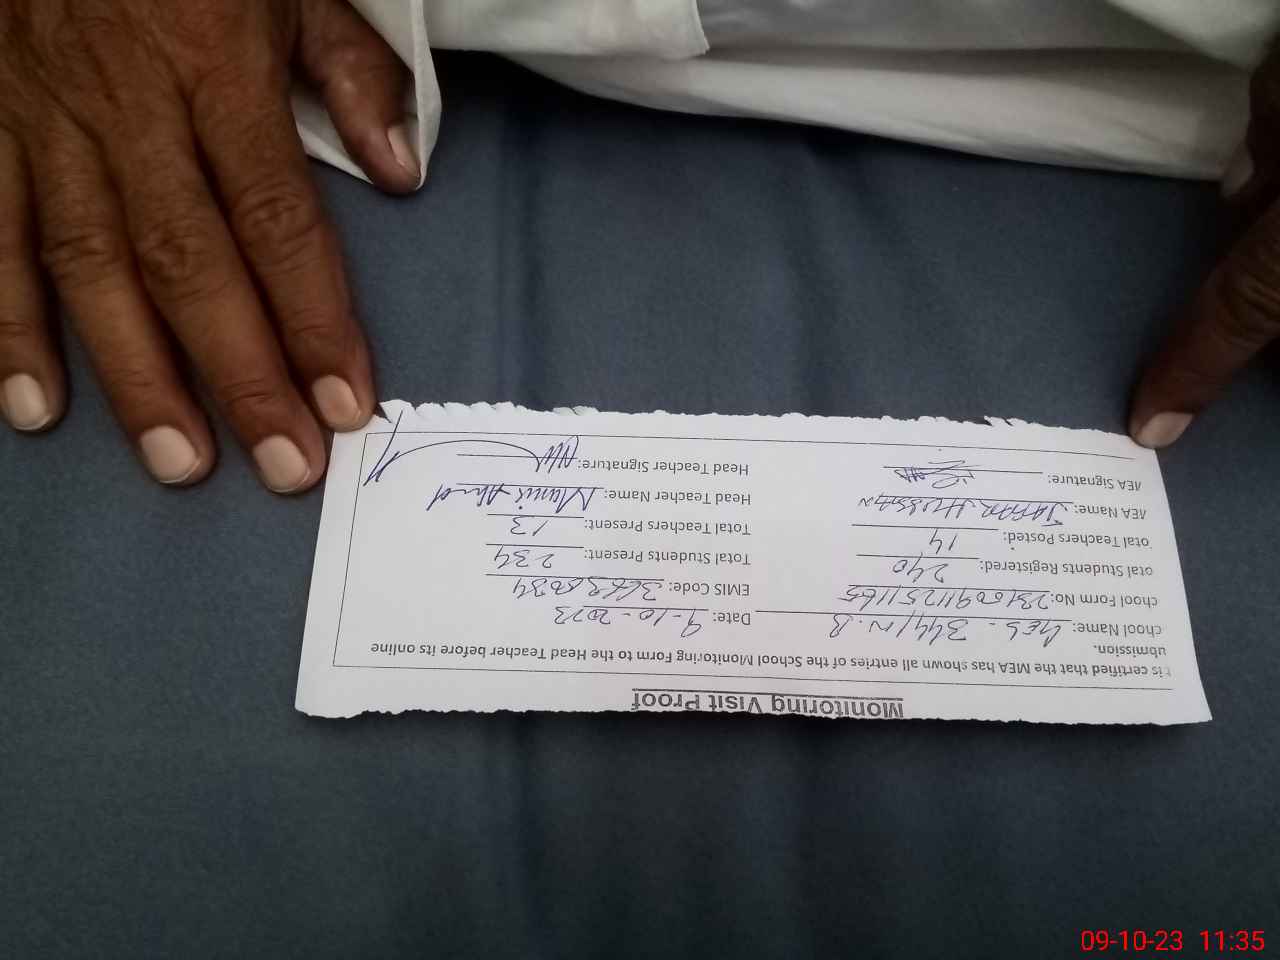 Monitoring Visit Proof
t is certified that the MEA has shown all entries of the School Monitoring Form to the Head Teacher before its online
ubmission.
chool Name: GES - 344/W.B Date: 9-10-2023
chool Form No: EMIS Code:
otal Students Registered: 240 Total Students Present: 234
otal Teachers Posted: 14 Total Teachers Present: 13
MEA Name: JAFFAR HUSSAIN Head Teacher Name: Munir Ahmad
MEA Signature: Head Teacher Signature:
09-10-23 11:35